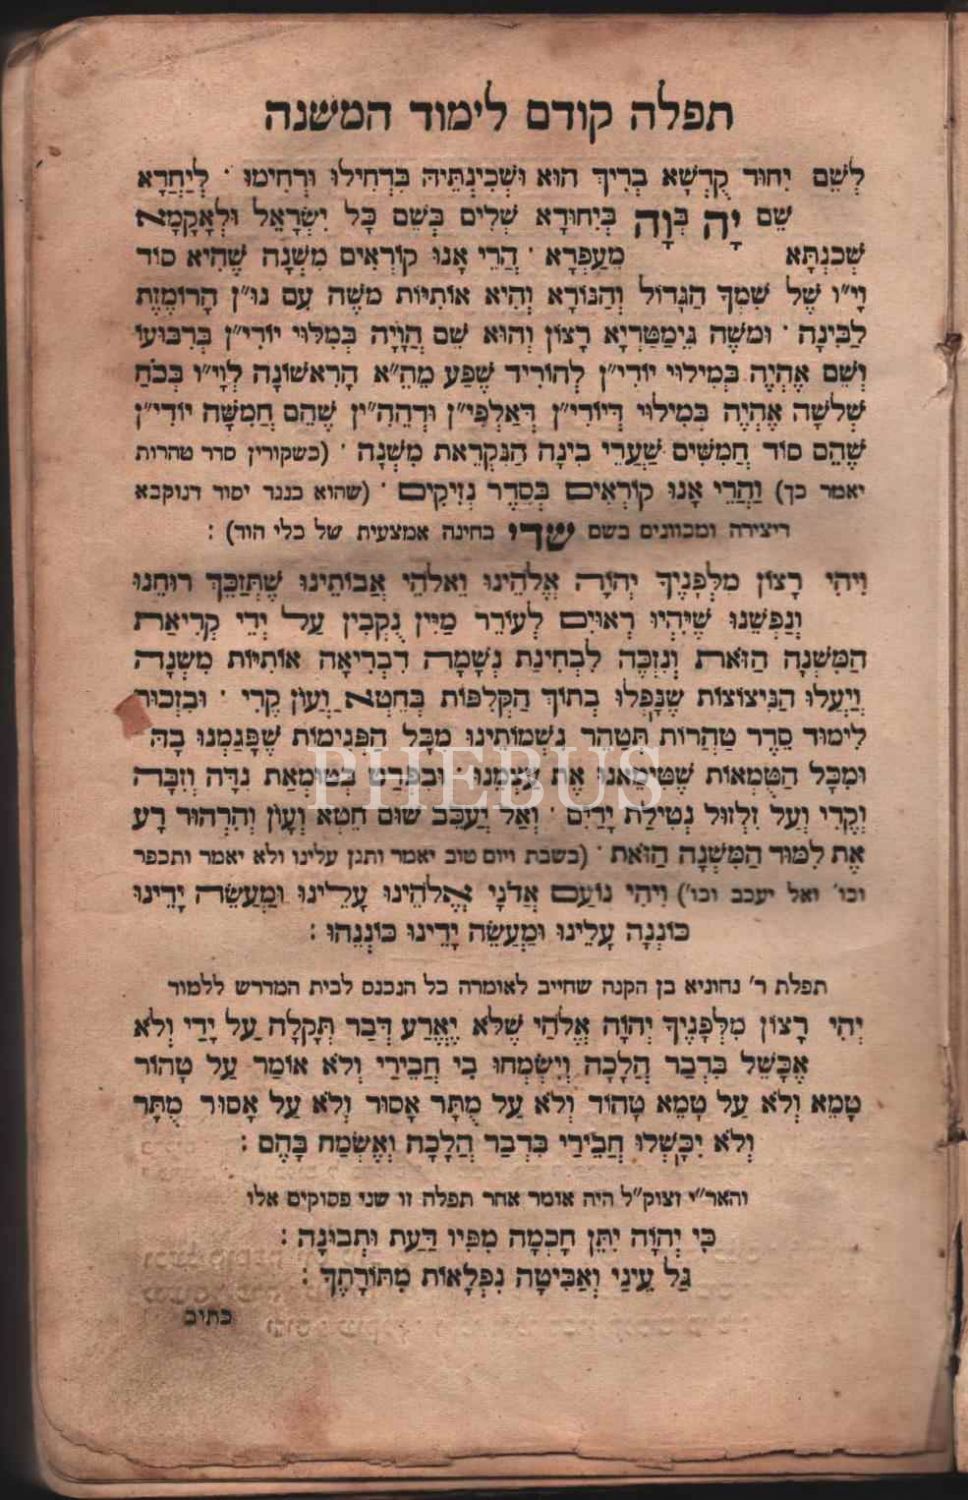 תפלה קודם לימוד המשנה
לְשֵׁם יִחוּד קֻדְשָׁא בְּרִיךְ הוּא וּשְׁכִינְתֵּיהּ בִּדְחִילוּ וּרְחִימוּ · לְיַחֲדָא
שֵׁם יָהּ בְּוָה בְּיִחוּדָא שְׁלִים בְּשֵׁם כָּל יִשְׂרָאֵל וּלְאָקָמָא
שְׁכִנְתָּא מֵעַפְרָא · הֲרֵי אָנוּ קוֹרְאִים מִשְׁנָה שֶׁהִיא סוֹד
וָי״ו שֶׁל שִׁמְךָ הַגָּדוֹל וְהַנּוֹרָא וְהִיא אוֹתִיּוֹת מֹשֶׁה עִם נוּ״ן הָרוֹמֶזֶת
לַבִּינָה · וּמֹשֶׁה גִּימַטְרִיָא רָצוֹן וְהוּא שֵׁם הֲוָיָ״ה בְּמִלּוּי יוֹדִי״ן בְּרִבּוּעוֹ
וְשֵׁם אֶהְיֶה בְּמִילוּי יוֹדִי״ן לְהוֹרִיד שֶׁפַע מֵהֵ״א הָרִאשׁוֹנָה לְוָי״ו בְּכֹחַ
שְׁלֹשָׁה אֶהְיֶה בְּמִילוּי דְּיוֹדִי״ן דְּאַלְפִי״ן וּדְהֵהִ״ין שֶׁהֵם חֲמִשָּׁה יוֹדִי״ן
שֶׁהֵם סוֹד חֲמִשִּׁים שַׁעֲרֵי בִינָה הַנִּקְרֵאת מִשְׁנָה · (כשקורין סדר טהרות
יאמר כך) וַהֲרֵי אָנוּ קוֹרְאִים בְּסֵדֶר נְזִיקִים · (שהוא כנגד יסוד דנוקבא
דיצירה ומכוונים בשם שדי בחינה אמצעית של כלי הוד) :
וִיהִי רָצוֹן מִלְּפָנֶיךָ יְהוָֹה אֱלֹהֵינוּ וֵאלֹהֵי אֲבוֹתֵינוּ שֶׁתְּזַכֵּךְ רוּחֵנוּ
וְנַפְשֵׁנוּ שֶׁיִּהְיוּ רְאוּיִם לְעוֹרֵר מַיִּין נֻקְבִין עַל יְדֵי קְרִיאַת
הַמִּשְׁנָה הַזּאֹת וְנִזְכֶּה לִבְחִינַת נְשָׁמָה דִבְרִיאָה אוֹתִיּוֹת מִשְׁנָה
וְיַעֲלוּ הַנִּיצוֹצוֹת שֶׁנָּפְלוּ בְתוֹךְ הַקְּלִפּוֹת בְּחֵטְא וַעֲוֹן קֶרִי · וּבִזְכוּת
לִימוּד סֵדֶר טַהֲרוֹת תְּטַהֵר נִשְׁמוֹתֵינוּ מִכָּל הַפְּגִימוֹת שֶׁפָּגַמְנוּ בָהּ
וּמִכָּל הַטֻּמְאוֹת שֶׁטִּימֵּאנוּ אֶת עַצְמֵנוּ · וּבִפְרַט בְּטוּמְאַת נִדָּה וְזִבָּה
וְקֶרִי וְעַל זִלְזוּל נְטִילַת יָדַיִם · וְאַל יְעַכֵּב שׁוּם חֵטְא וְעָוֹן וְהִרְהוּר רָע
אֶת לִמּוּד הַמִּשְׁנָה הַזּאֹת · (בשבת ויום טוב יאמר ותגן עלינו ולא יאמר ותכפר
וכו׳ ואל יעכב וכו׳) וִיהִי נוֹעַם אֲדֹנָי אֱלֹהֵינוּ עָלֵינוּ וּמַעֲשֵׂה יָדֵינוּ
כּוֹנְנָה עָלֵינוּ וּמַעֲשֵׂה יָדֵינוּ כּוֹנְנֵהוּ :
תפלת ר׳ נחוניא בן הקנה שחייב לאומרה כל הנכנס לבית המדרש ללמוד
יְהִי רָצוֹן מִלְּפָנֶיךָ יְהוָֹה אֱלֹהַי שֶׁלֹּא יֶאֱרַע דְּבַר תְּקָלָה עַל יָדִי וְלֹא
אֶכָּשֵׁל בִּדְבַר הֲלָכָה וְיִשְׂמְחוּ בִי חֲבֵירַי וְלֹא אוֹמַר עַל טָהוֹר
טָמֵא וְלֹא עַל טָמֵא טָהוֹר וְלֹא עַל מֻתָּר אָסוּר וְלֹא עַל אָסוּר מֻתָּר
וְלֹא יִכָּשְׁלוּ חֲבֵירַי בִּדְבַר הֲלָכָה וְאֶשְׂמַח בָּהֶם :
והאר״י זצוק״ל היה אומר אחר תפלה זו שני פסוקים אלו
כִּי יְהוָֹה יִתֵּן חָכְמָה מִפִּיו דַּעַת וּתְבוּנָה :
גַּל עֵינַי וְאַבִּיטָה נִפְלָאוֹת מִתּוֹרָתֶךָ :
כתיב
PHEBUS